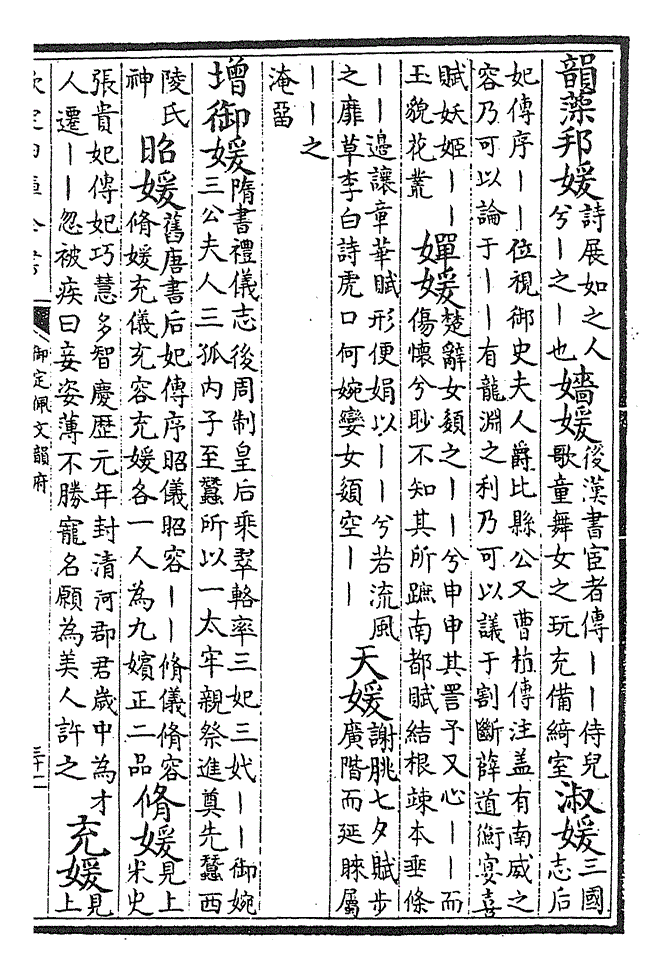 韻藻邦媛詩展如之人兮丨之丨也嬙媛後漢書宦者傳丨丨侍兒歌童舞女之玩充備綺室淑媛三國志后
妃傳序丨丨位視御史夫人爵比縣公又曹植傳注盖有南威之
容乃可以論于丨丨有龍淵之利乃可以議于割斷薛道衡宴喜
賦妖姬丨丨玉貌花叢嬋媛楚辭女嬃之丨丨兮申申其詈予又心丨丨而傷懷兮眇不知其所蹠南都賦結根竦本垂條
丨丨邉讓章華賦形便娟以丨丨兮若流風之靡草李白詩虎口何婉孌女嬃空丨丨天媛謝脁七夕賦步廣階而延睞屬
丨丨之淹留
增御媛隋書禮儀志後周制皇后乘翠輅率三妃三㚤丨丨御婉三公夫人三孤内子至蠶所以一太牢親祭進奠先蠶西
陵氏神昭媛舊唐書后妃傳序昭儀昭容丨丨脩儀脩容脩媛充儀充容充媛各一人為九嬪正二品脩媛見上宋史
張貴妃傳妃巧慧多智慶歴元年封清河郡君歲中為才人遷丨丨忽被疾曰妾姿薄不勝寵名願為美人許之充媛見上
御定佩文韻府